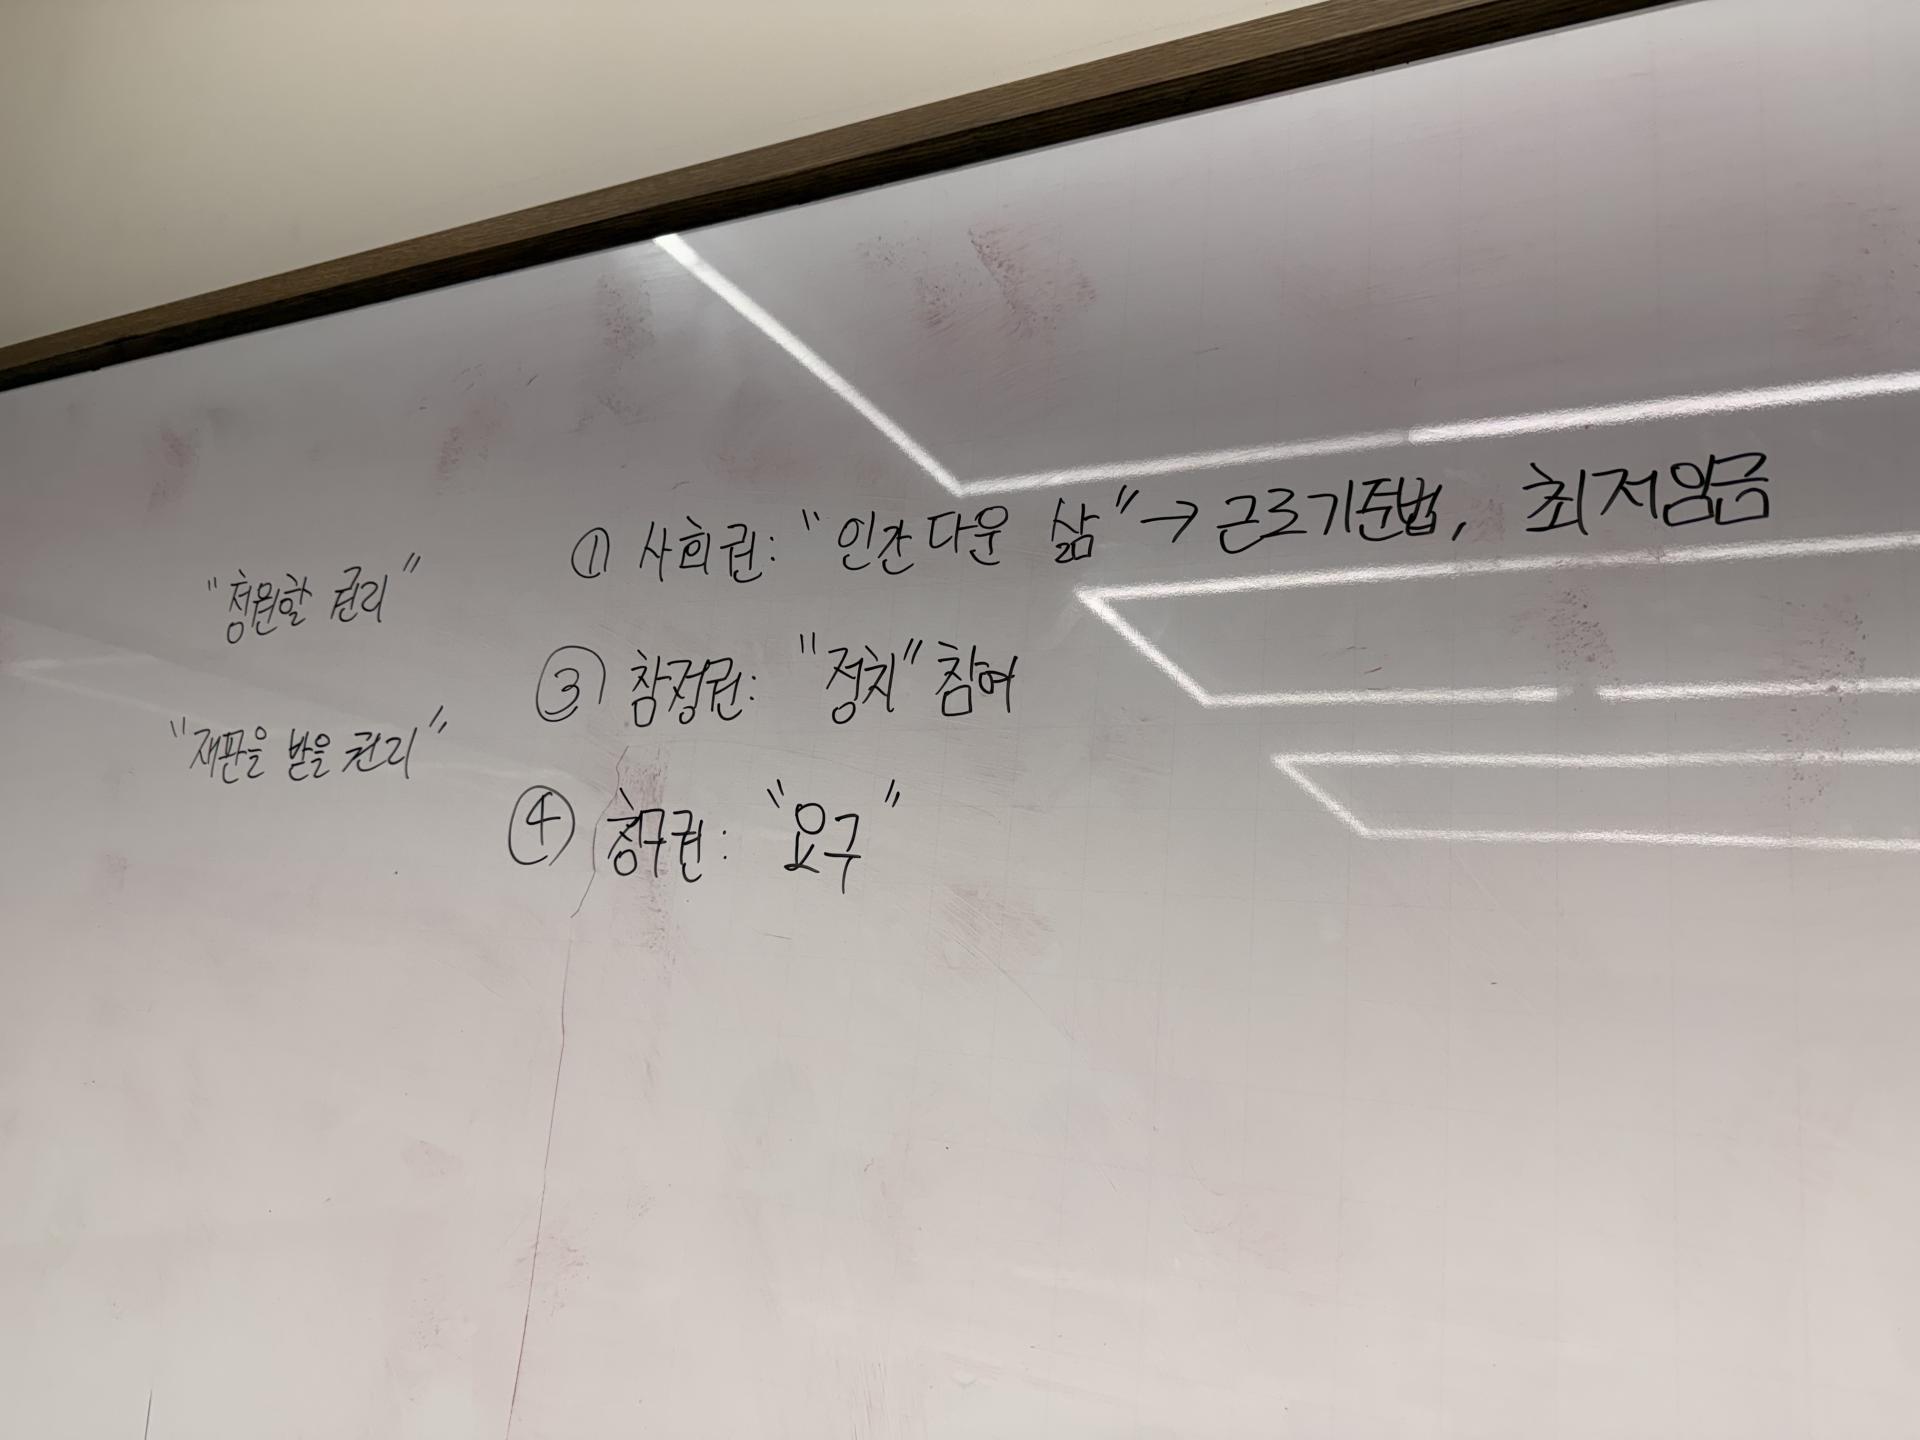 ① 사회권: "인간다운 삶" → 근로기준법, 최저임금
"청원할 권리"
③ 참정권: "정치" 참여
"재판을 받을 권리"
④ 청구권: "요구"